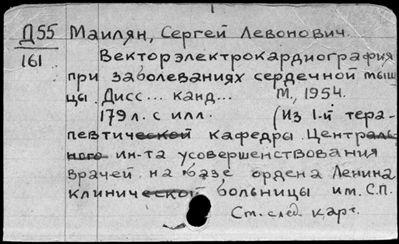 Д55 Маилян, Сергей Левонович.
161 Векторэлектрокардиография
при заболеваниях сердечной мыш
цы. Дисс... канд... М., 1954.
179 л. с илл. (Из 1-й тера-
певтической кафедры Централь-
ного ин-та усовершенствования
врачей на базе ордена Ленина
клинической больницы им. С.П.
См. след. карт.